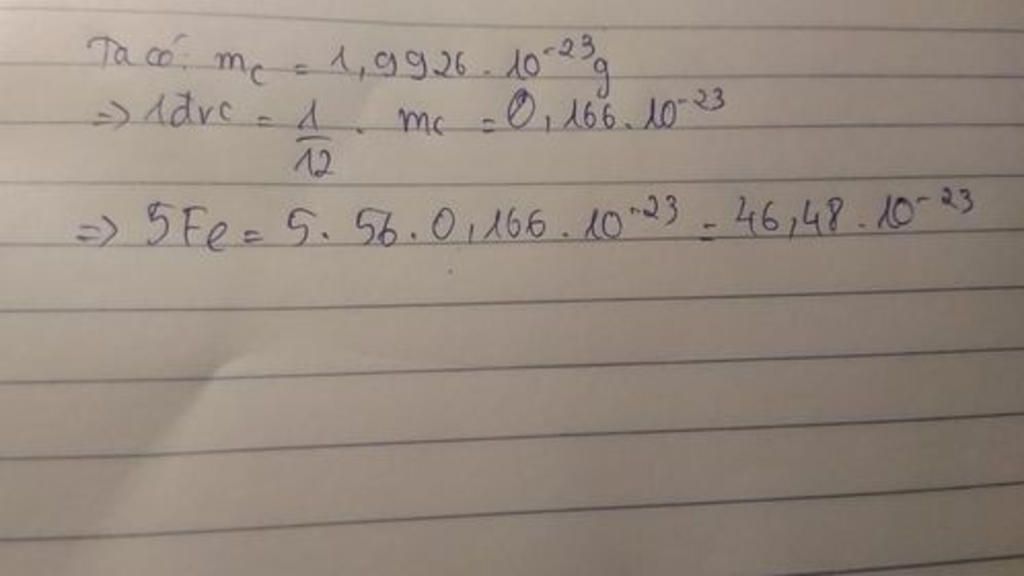 Ta có: mc = 1,9926 . 10^-23 g
=> 1đvc = 1/12 . mc = 0,166. 10^-23
=> 5Fe = 5. 56. 0,166. 10^-23 = 46,48. 10^-23